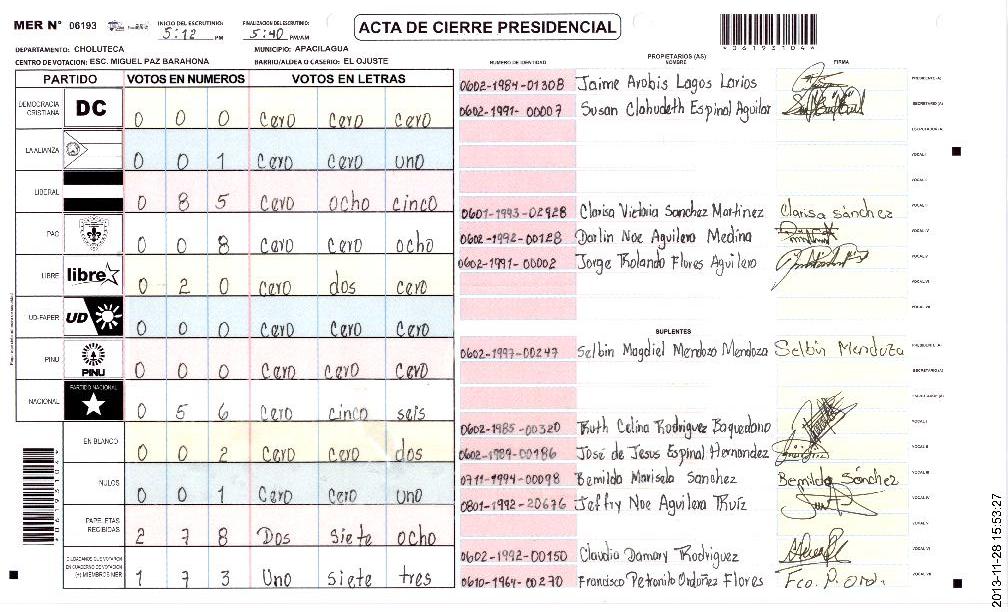 MER N° 06193
INICIO DEL ESCRUTINIO:
5:12 PM
FINALIZACION DEL ESCRUTINIO:
5:40 PM/AM
ACTA DE CIERRE PRESIDENCIAL
*06193104*
DEPARTAMENTO: CHOLUTECA
MUNICIPIO: APACILAGUA
CENTRO DE VOTACION: ESC. MIGUEL PAZ BARAHONA
BARRIO/ALDEA O CASERIO: EL OJUSTE
PARTIDO VOTOS EN NUMEROS VOTOS EN LETRAS
DEMOCRACIA CRISTIANA DC 0 0 0 cero cero cero
LA ALIANZA 0 0 1 cero cero uno
LIBERAL 0 8 5 cero ocho cinco
PAC 0 0 8 cero cero ocho
LIBRE libre 0 2 0 cero dos cero
UD-FAPER UD 0 0 0 cero cero cero
PINU PINU 0 0 0 cero cero cero
NACIONAL PARTIDO NACIONAL 0 5 6 cero cinco seis
EN BLANCO 0 0 2 cero cero dos
NULOS 0 0 1 cero cero uno
PAPELETAS RECIBIDAS 2 7 8 Dos siete ocho
CIUDADANOS QUE VOTARON EN CUADERNO DE VOTACION (+) MIEMBROS MER 1 7 3 Uno siete tres
NUMERO DE IDENTIDAD
PROPIETARIOS (AS)
NOMBRE
FIRMA
0602-1984-01308 Jaime Arobis Lagos Larios PRESIDENTE (A)
0602-1991-00007 Susan Clahudeth Espinal Aguilar SECRETARIO (A)
ESCRUTADOR (A)
VOCAL I
VOCAL II
0601-1993-02928 Clarisa Victoria Sanchez Martinez Clarisa sánchez
0602-1992-00128 Darlin Noe Aguilera Medina VOCAL IV
0602-1991-00002 Jorge Rolando Flores Aguilera VOCAL V
VOCAL VI
VOCAL VII
SUPLENTES
0602-1997-00247 Selbin Magdiel Mendoza Mendoza Selbin Mendoza PRESIDENTE (A)
SECRETARIO (A)
ESCRUTADOR (A)
0602-1985-00320 Ruth Celina Rodriguez Baquedano VOCAL I
0602-1989-00186 José de Jesus Espinal Hernandez VOCAL II
0711-1994-00098 Bemilda Marisela Sanchez Bemilda Sánchez VOCAL III
0801-1992-20676 Jeffry Noe Aguilera Ruíz VOCAL IV
VOCAL V
0602-1992-00150 Claudia Damary Rodriguez VOCAL VI
0610-1964-00270 Francisco Petronilo Ordoñez Flores Fco. P. Ord. VOCAL VII
*06193104*
2013-11-28 15:53:27